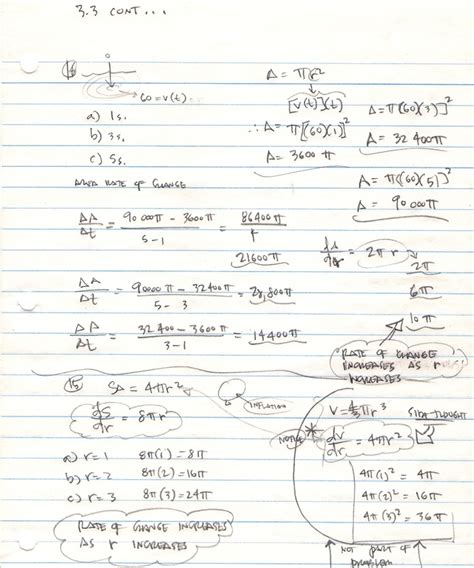 3.3 CONT...
16
60 = v(t)
a) 1s.
b) 3s.
c) 5s.
A = πr²
[v(t)](t)
∴ A = π[(60)(1)]²
A = 3600π
A = π[(60)(3)]²
A = 32400π
A = π[(60)(5)]²
A = 90000π
RATE of CHANGE
ΔA/Δt = 90000π - 3600π / 5-1 = 86400π / 4
21600π
ΔA/Δt = 90000π - 32400π / 5-3 = 28,800π
ΔA/Δt = 32400 - 3600π / 3-1 = 14400π
= 2πr
2π
6π
10π
RATE of CHANGE
INCREASES AS r
INCREASES
15 SA = 4πr²
INFLATION
dS/dr = 8πr
a) r = 1 8π(1) = 8π
b) r = 2 8π(2) = 16π
c) r = 3 8π(3) = 24π
RATE of CHANGE INCREASES
AS r INCREASES
V = 4/3πr³ SIDE-THOUGHT
NOTICE
dv/dr = 4πr²
4π(1)² = 4π
4π(2)² = 16π
4π(3)² = 36π
NOT part of
problem